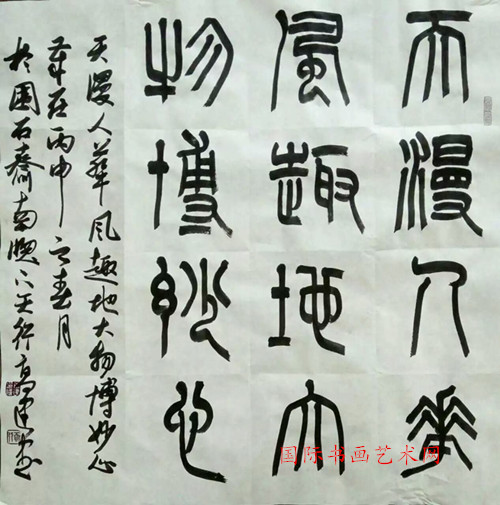 天漫人華
風趣地大
物博妙心
天漫人華風趣地大物博妙心
歲在丙申之春月
於園石齋南牕下天行
国际书画艺术网